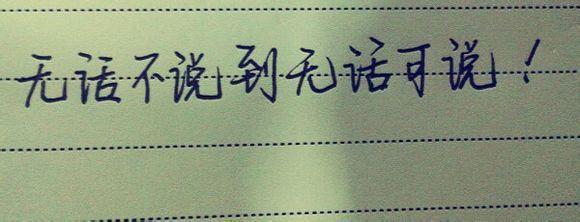 无话不说到无话可说！